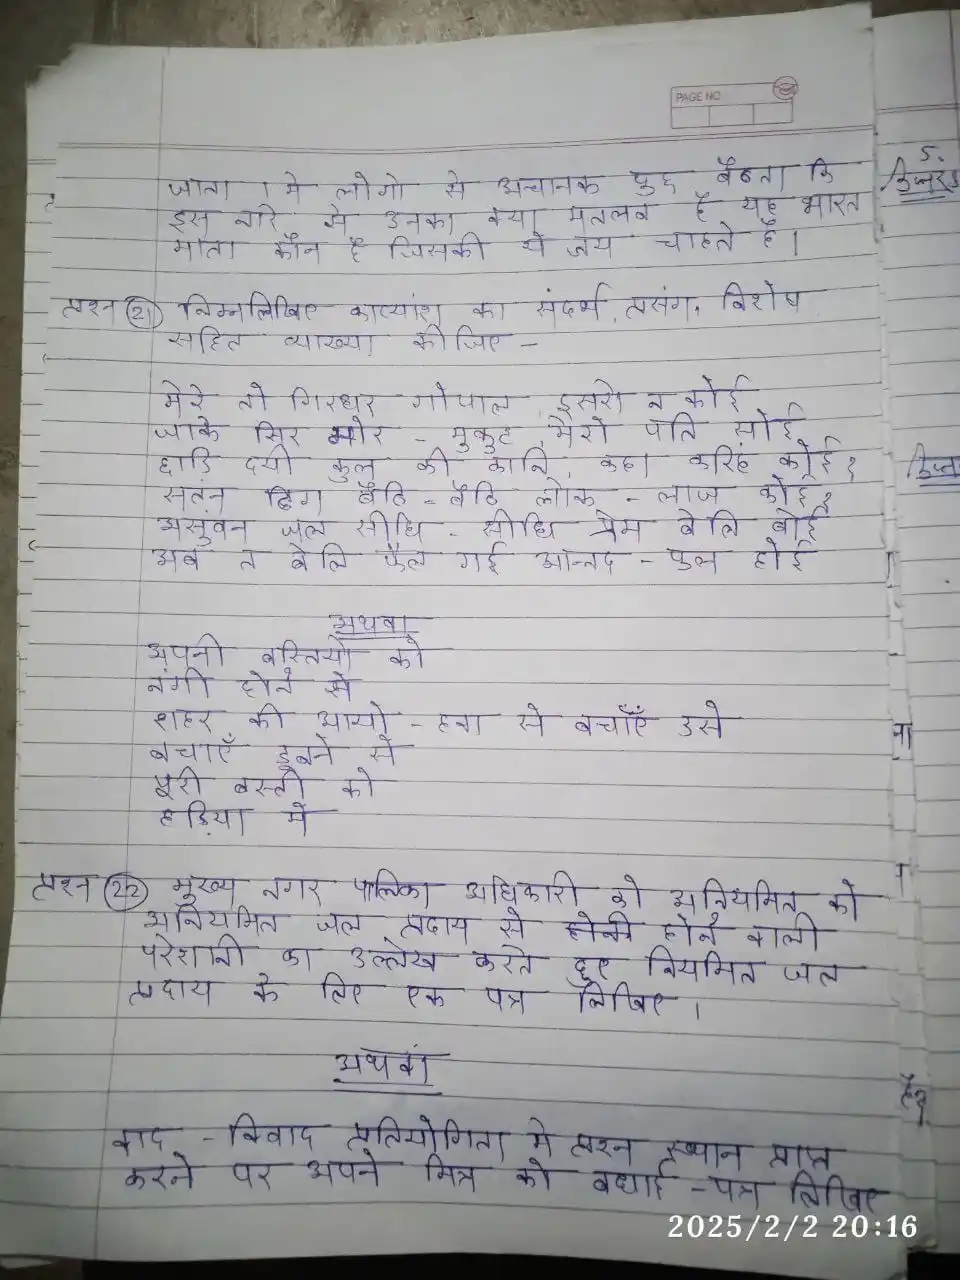 PAGE NO
जाता । मै लोगो से अचानक पुछ बैठता कि
इस नारे से उनका क्या मतलब है यह भारत
माता कौन है जिसकी ये जय चाहते है ।
प्रश्न 21 निम्नलिखित काव्यांश का संदर्भ, प्रसंग, विशेष
सहित व्याख्या कीजिए -
मेरे तो गिरधर गोपाल, दुसरो न कोई
जाके सिर मोर - मुकुट, मेरो पति सोई
छाडि दयी कुल की कानि, कहा करिहै कोई?
संतन ढिग बैठि - बैठि लोक - लाज
असुवन जल सीचि - सीचि प्रेम बेलि बोई
अब त बेलि फैल गई आनंद - फल होई
अथवा
अपनी बस्तियो को
नंगी होने से
शहर की आबो - हवा से बचाएँ उसे
बचाएँ डुबने से
पूरी बस्ती को
हडिया में
प्रश्न 22 मुख्य नगर पालिका अधिकारी को अनियमित को
अनियमित जल प्रदाय से होने वाली
परेशानी का उल्लेख करते हुए नियमित जल
प्रदाय के लिए एक पत्र लिखिए ।
अथवा
वाद - विवाद प्रतियोगिता मे स्थान प्राप्त
करने पर अपने मित्र को बधाई - पत्र लिखिए
5.
है?
2025/2/2 20:16